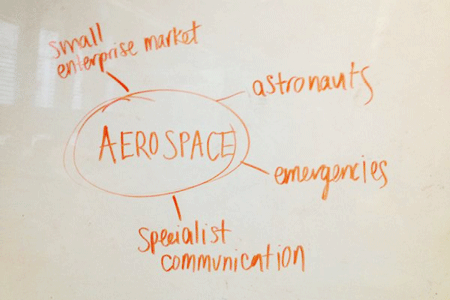 small
enterprise market
astronauts
AEROSPACE
emergencies
Specialist
communication